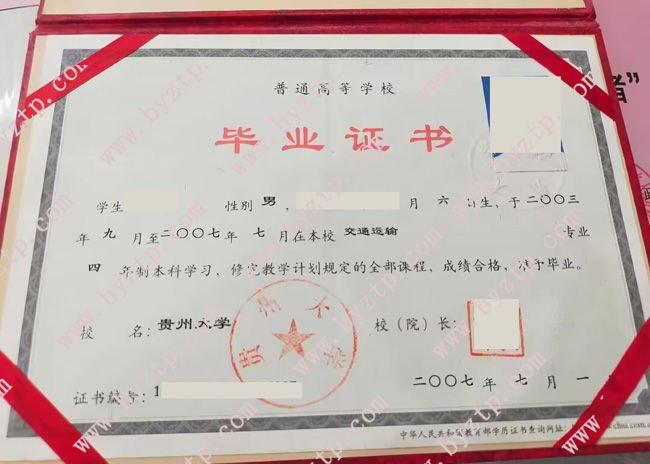 普通高等学校
毕业证书
学生 性别 男 , 月 六 日生,于二〇〇三
年 九 月至二〇〇七年 七 月在本校 交通运输 专业
四 年制本科学习,修完教学计划规定的全部课程,成绩合格,准予毕业。
校 名:贵州大学 校(院)长:
贵州大学
证书编号:1
二〇〇七 年 七 月 一
中华人民共和国教育部学历证书查询网址:
www.byztp.com